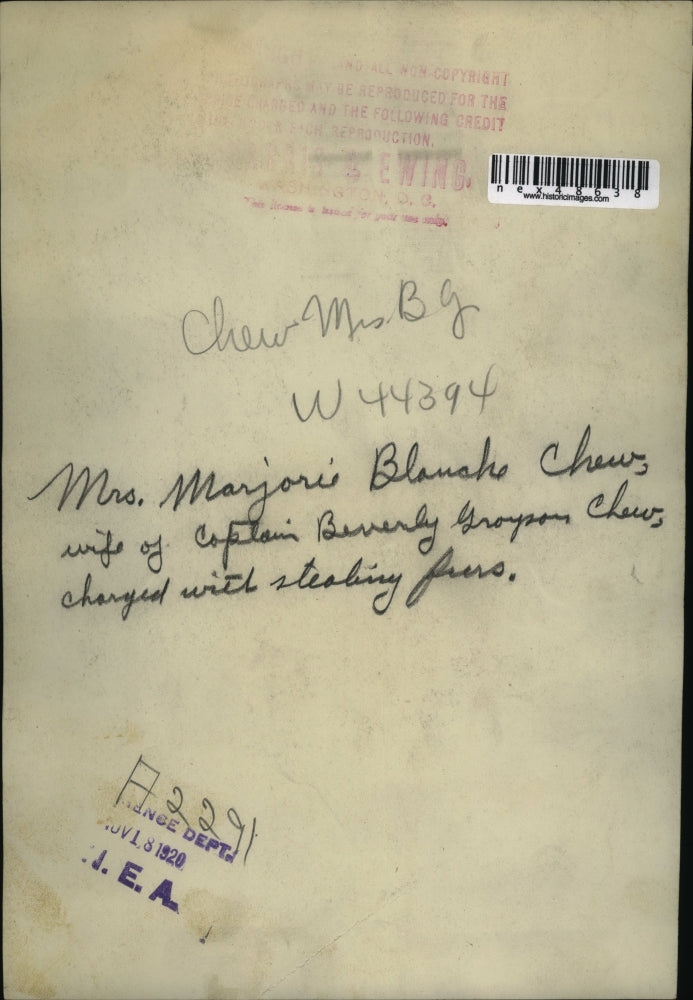 AND ALL NON-COPYRIGHT
MAY BE REPRODUCED FOR THE
CHARGED AND THE FOLLOWING CREDIT
EACH REPRODUCTION,
& EWING,
WASHINGTON, D. C.
This license is issued for your use only.
nex48638
www.historicimages.com
Chew Mrs. B G
W 44394
Mrs. Marjorie Blanche Chew,
wife of Captain Beverly Grayson Chew,
charged with stealing furs.
A2291
DEPT.
NOV 18 1920
N. E. A.